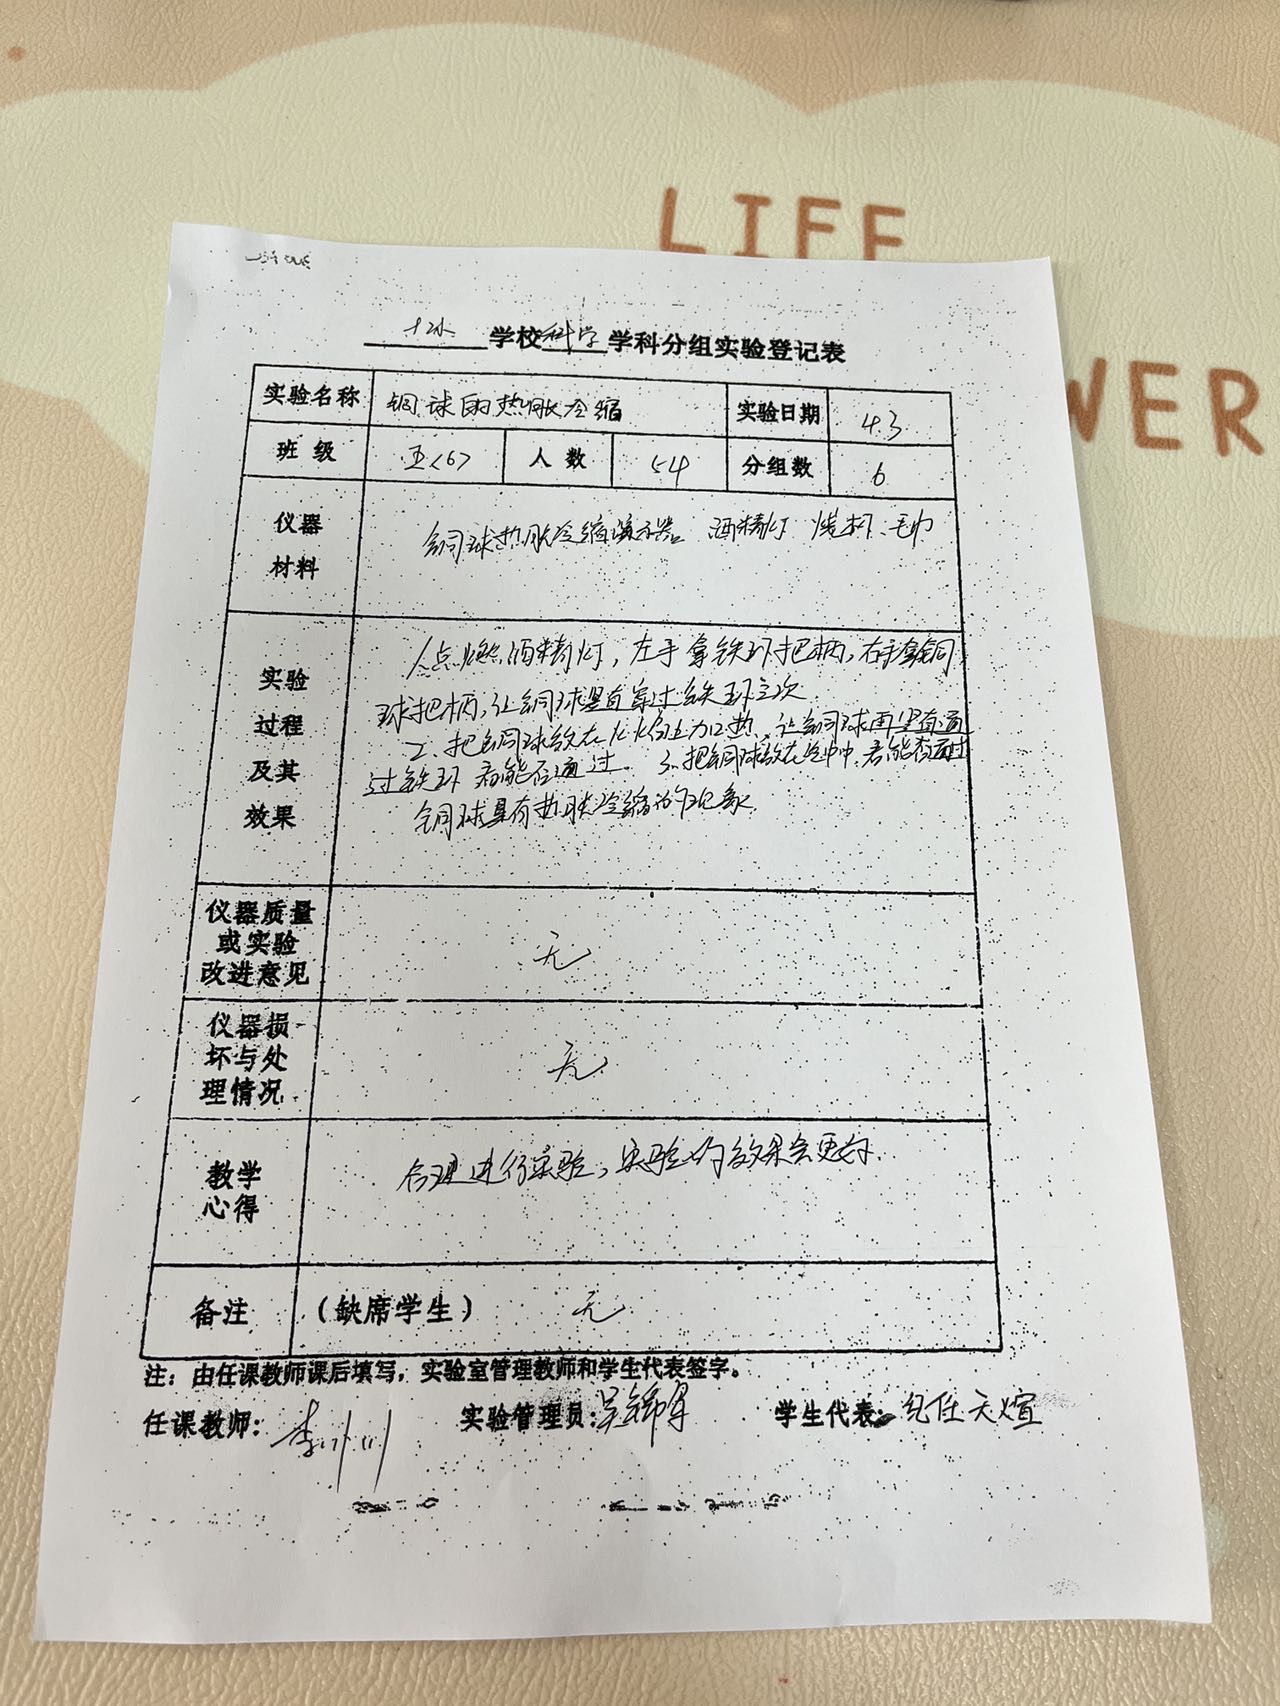 LIFE
WER
学校科学学科分组实验登记表
实验名称 铜球的热胀冷缩 实验日期 4.3
班级 五<6> 人数 54 分组数 6
仪器材料 铜球热胀冷缩演示器 酒精灯 烧杯 毛巾
实验过程及其效果
1.点燃酒精灯，左手拿铁环把柄，右手拿铜
球把柄，让铜球垂直穿过铁环三次
2、把铜球放在火焰上加热、让铜球再垂直通
过铁环 看能否通过. 3、把铜球放在空中中，看能否通过
铜球具有热胀冷缩的现象.
仪器质量或实验改进意见 无
仪器损坏与处理情况 无
教学心得 合理进行实验，实验的效果会更好.
备注 (缺席学生) 无
注：由任课教师课后填写，实验室管理教师和学生代表签字。
任课教师： 实验管理员： 学生代表：纪任天煊